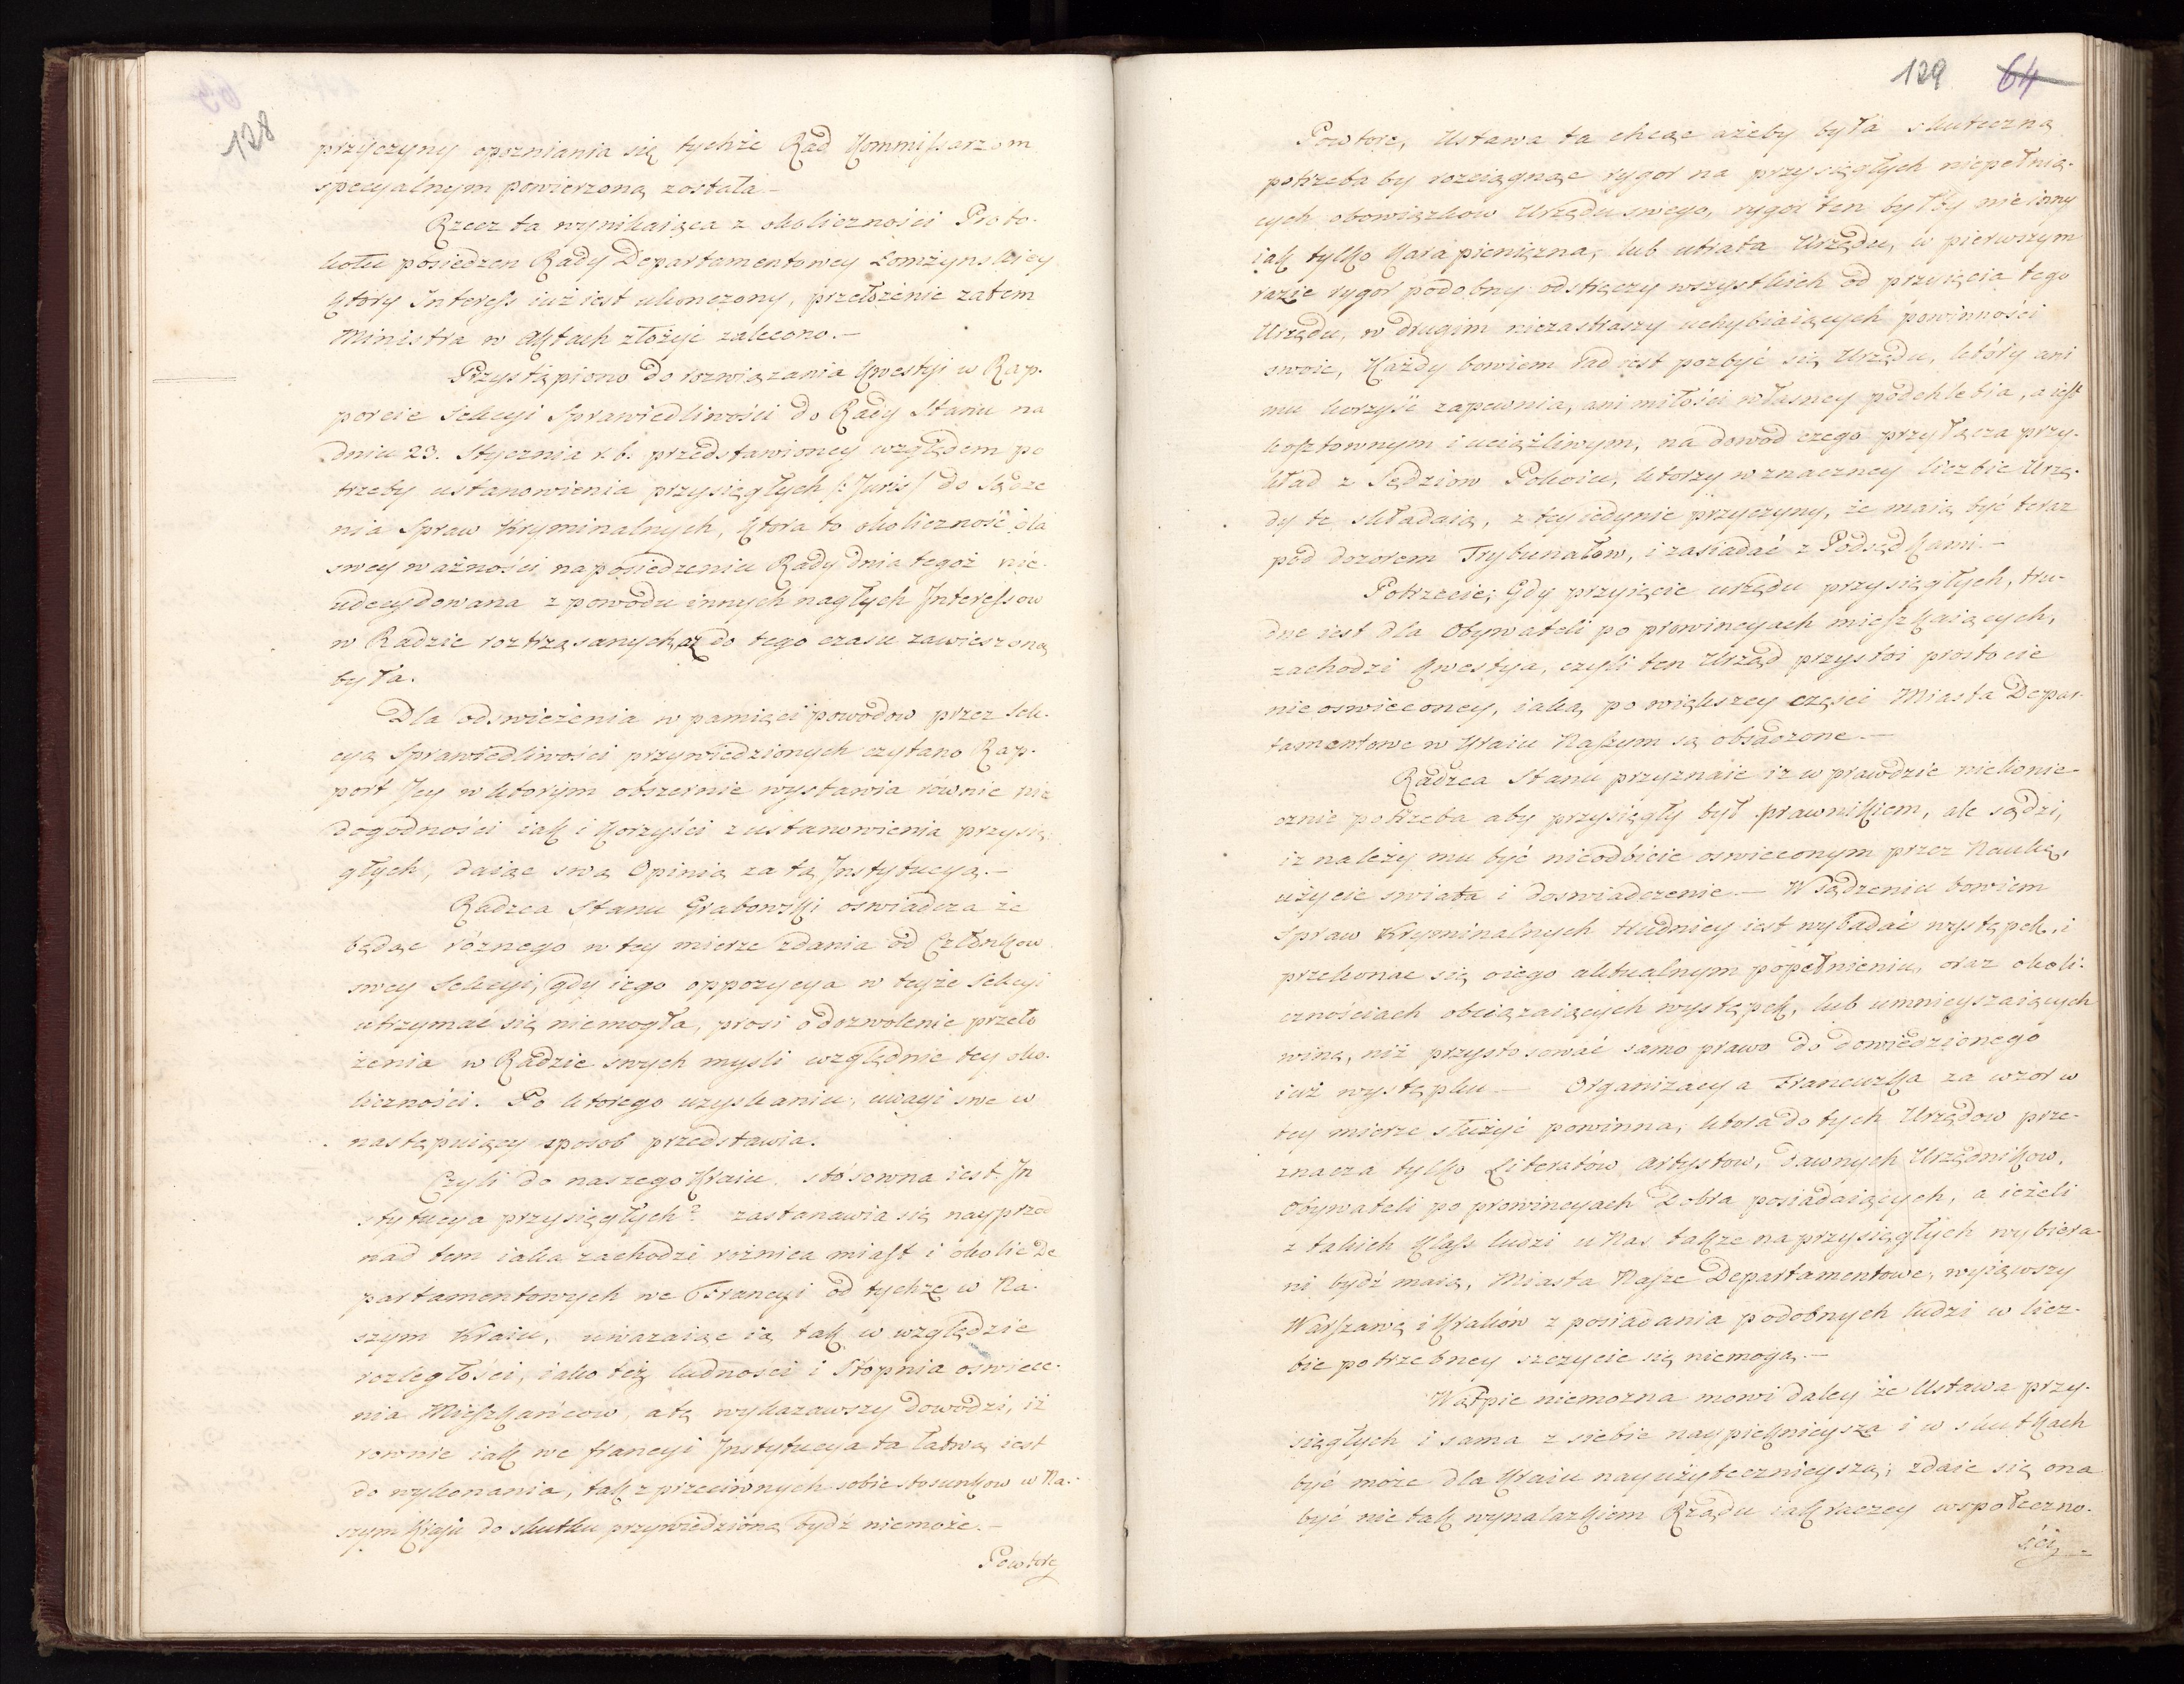 128
przyczyny opozniania się tychże Rad Kommissarzom
specyalnym powierzoną została.—
Rzecz ta wynikaiąca z okoliczności Proto-
kołu posiedzen Rady Departamentowey Łomżynskiey
który Interess iuż iest ukonczony, przełożenie zatem
Ministra w Aktach złożyć zalecono.—
Przystąpiono do rozwiązania kwestyi w Rap-
porcie Sekcyi Sprawiedliwości do Rady Stanu na
dniu 23. Stycznia r. b. przedstawioney względem po
trzeby ustanowienia przysięgłych /: Juris / do sądze
nia Spraw Kryminalnych, ktora to okoliczność dla
swey ważności na posiedzeniu Rady dnia tegoż nie-
udecydowana z powodu innych nagłych Interessow
w Radzie roztrząsanych, aż do tego czasu zawieszoną
była.
Dla odswieżenia w pamięci powodow przez Sek-
cyą Sprawiedliwości przywiedzionych czytano Rap-
port Jey w ktorym obszernie wystawia równie nie
dogodności iak i korzyści z ustanowienia przysię-
głych, daiąc swą Opinią za tą Instytucyą.—
Radzca Stanu Grabowski oswiadcza że
będąc róznego w tey mierze zdania od Członkow
swey Sekcyi, gdy iego oppozycya w teyże Sekcyi
utrzymać się niemogła, prosi o dozwolenie przeło
żenia w Radzie swych mysli względnie tey oko-
liczności. Po ktorego uzyskaniu, uwagi swe w
następuiący sposob przedstawia.
Czyli do naszego Kraiu stósowna iest In
stytucya przysięgłych? zastanawia się nayprzod
nad tem iaka zachodzi rożnica miast i okolic De
partamentowych we Francyi od tychże w Na-
szym Kraiu, uważaiąc ią tak w względzie
rozległości, iako też ludności i stopnia oswiece-
nia Mieszkańcow, a tę wykazawszy dowodzi, iż
rownie iak we francyi Instytucya ta łatwą iest
do wykonania, tak z przeciwnych sobie stosunkow w Na-
szym Kraju do skutku przywiedzióną bydź niemoże.—
Powtore
129 64
Powtore, Ustawa ta chcąc ażeby była skuteczną
potrzeba by rozciągnąć rygor na przysięgłych niepełnią-
cych obowiązkow Urzędu swego, rygor ten byłby nie inny
iak tylko Kara pieniężna, lub utrata Urzędu, w pierwszym
razie rygor podobny odstręczy wszystkich od przyięcia tego
Urzędu, w drugim niezastraszy uchybiaiących powinności
swoie, Każdy bowiem rad iest pozbyć się Urzędu, który ani
mu korzyść zapewnia, ani miłości własney podchlebia, a iest
kosztownym i uciążliwym, na dowod czego przyłącza przy-
kład z Sędziow Pokoiu, ktorzy w znaczney liczbie Urzę-
dy te składaią, z tey iedynie przyczyny, że maią być teraz
pod dozorem Trybunałow, i zasiadać z Podsędkami.—
Potrzecie; Gdy przyięcie urzędu przysięgłych, tru-
dne iest dla Obywateli po prowincyach mieszkaiących,
zachodzi kwestya, czyli ten Urząd przystoi prostocie
nieoswieconey, iaką po większey części Miasta Depar-
tamentowe w Kraiu Naszym są obsadzone.—
Radzca Stanu przyznaie iż w prawdzie niekonie-
cznie potrzeba aby przysięgły był prawnikiem, ale sądzi,
iz należy mu być nieodbicie oswieconym przez Naukę,
użycie swiata i doswiadczenie.— W Sądzeniu bowiem
Spraw Kryminalnych trudniey iest wybadać występek, i
przekonac się oiego aktualnym popełnieniu, oraz okoli-
cznościach obciązaiących występek, lub umnieyszaiących
winę, niż przystosować samo prawo do dowiedzionego
iuż występku.— Organizacya Francuzka za wzor w
tey mierze służyć powinna, ktora do tych Urzędow prze-
znacza tylko Literatów, Artystow, dawnych Urzędnikow,
Obywateli po prowincyach Dobra posiadaiących, a ieżeli
z takich Klass ludzi u Nas także na przysięgłych wybiera-
ni bydź maią, Miasta Nasze Departamentowe, wyiąwszy
Warszawę i Kraków z posiadania podobnych ludzi w licz-
bie potrzebney szczycic się niemogą.—
Wątpic niemozna mowi daley że Ustawa przy-
sięgłych i sama z siebie naypięknieysza i w skutkach
być może dla Kraiu nayużytecznieyszą; zdaie się ona
być nie tak wynalazkiem Rządu iak raczey wspołeczno-
ści